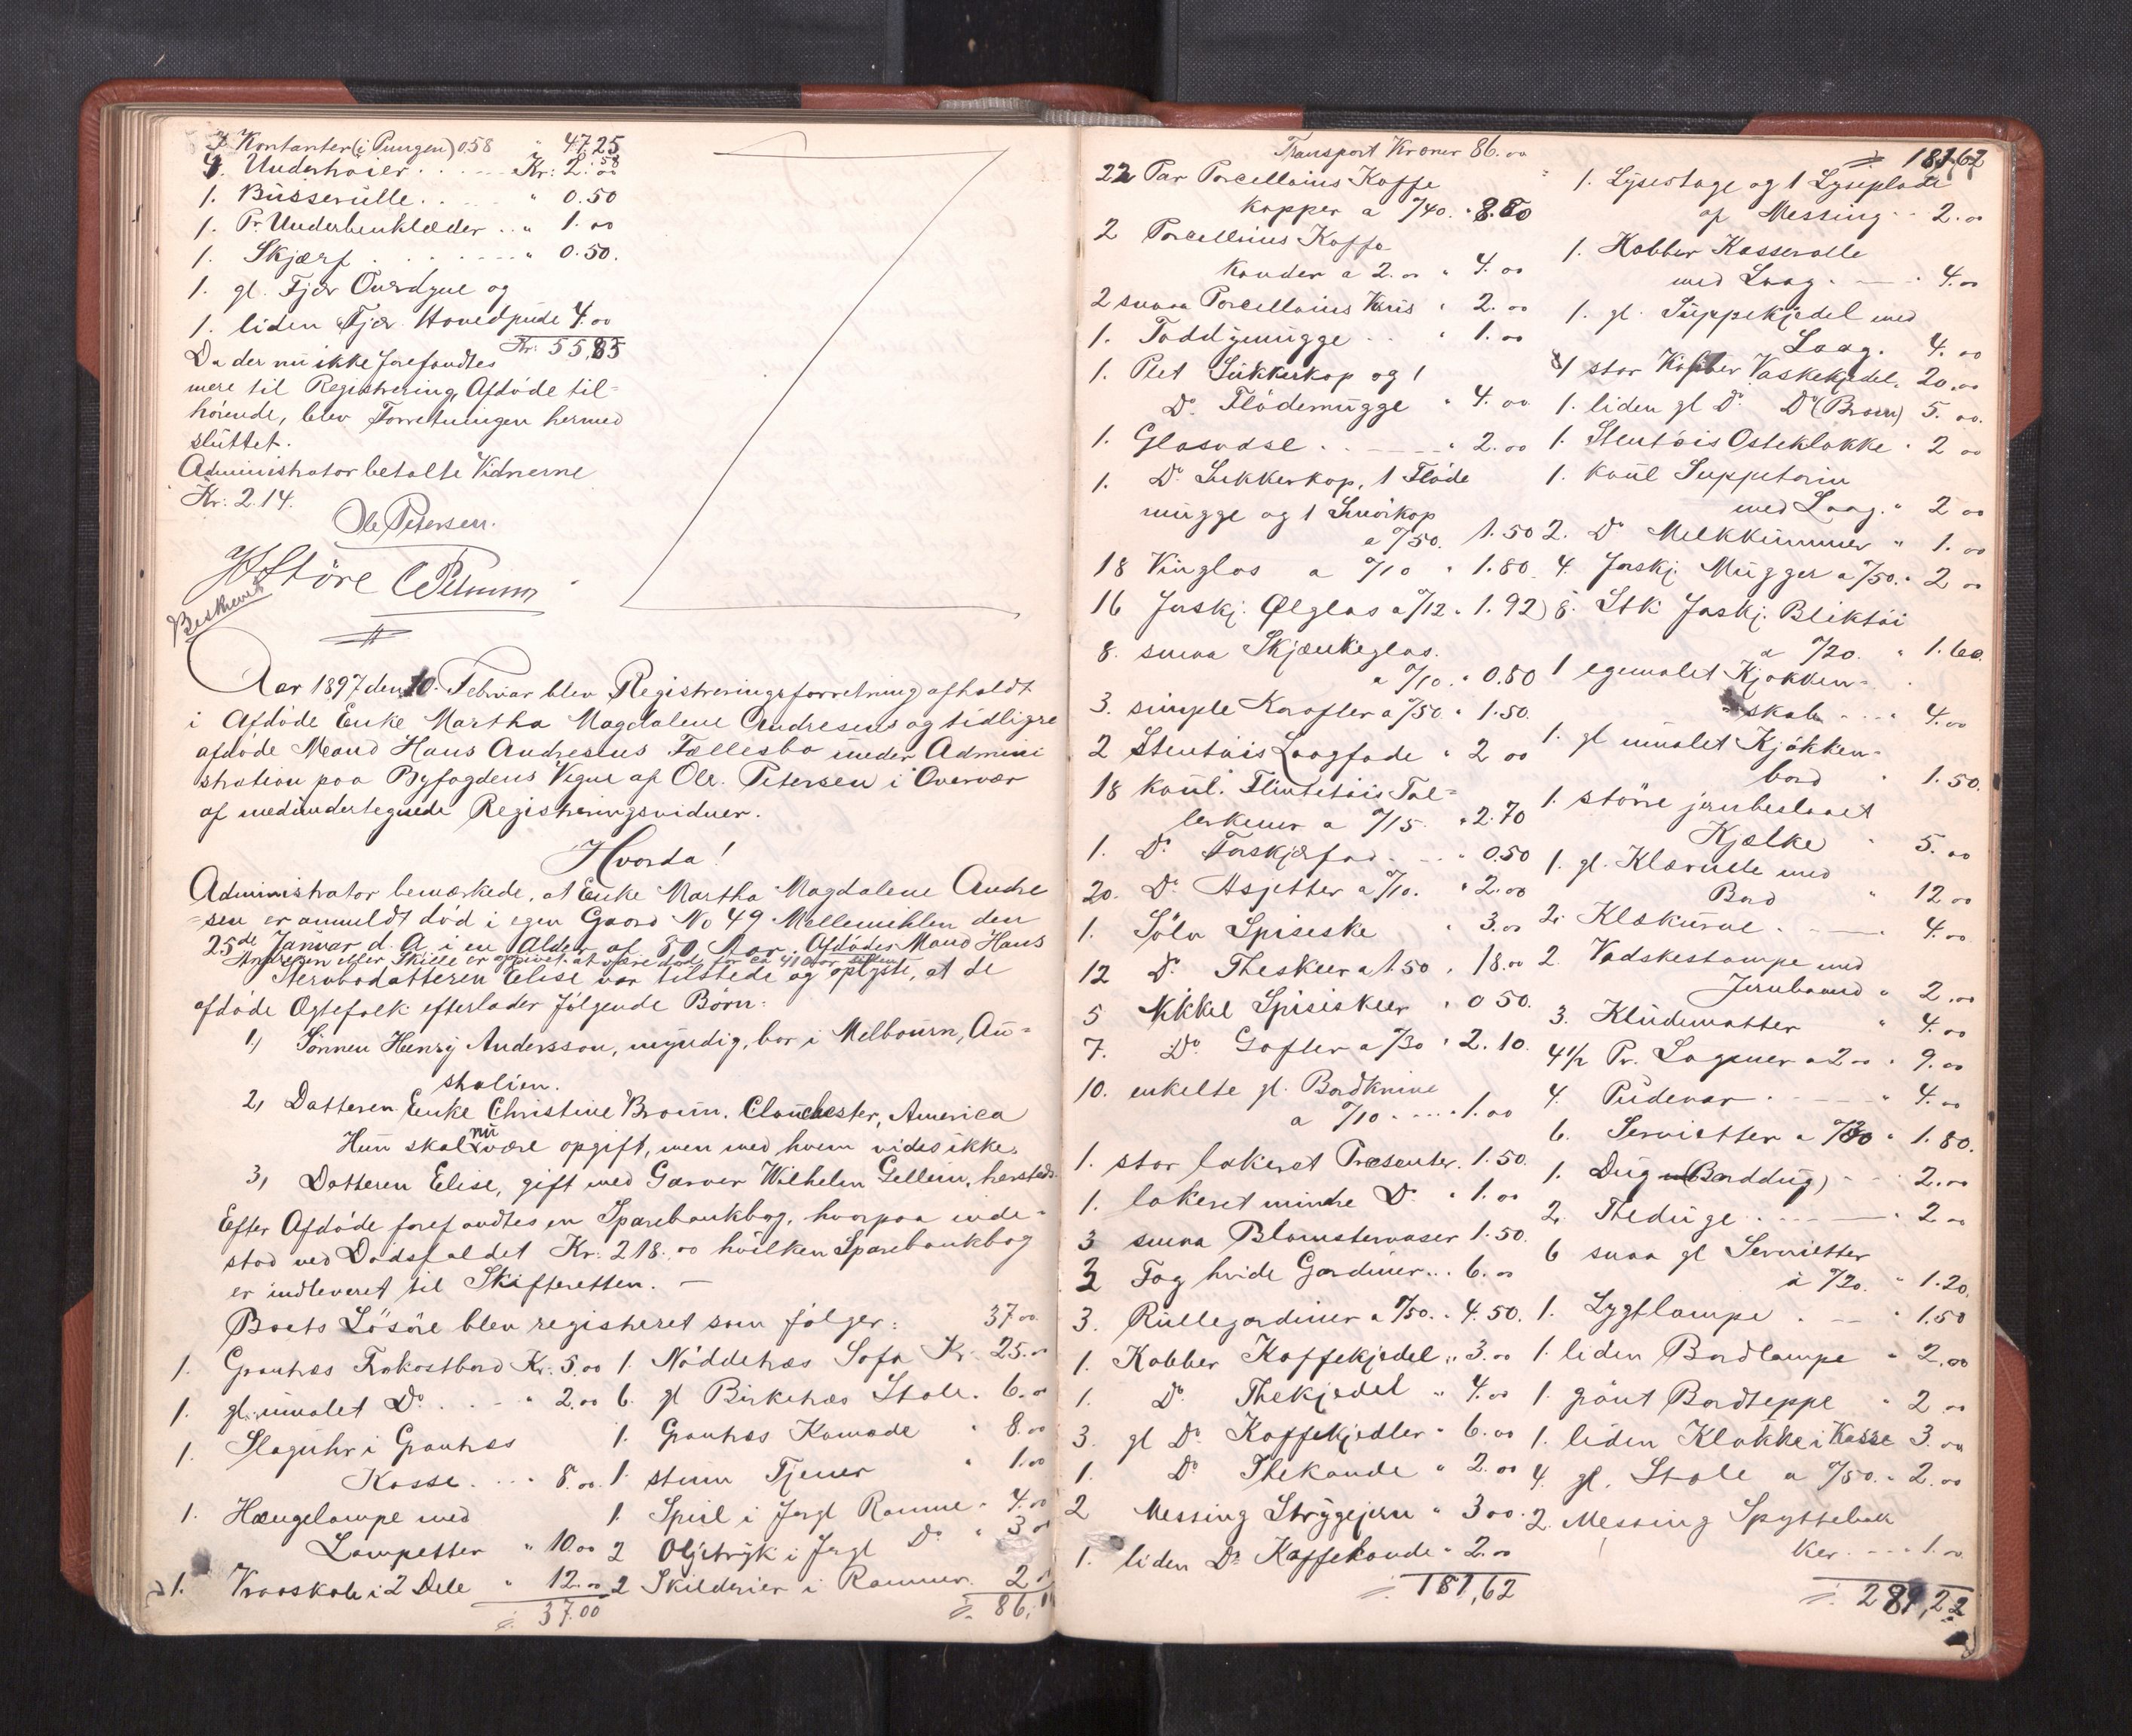 3 Kontanter (i Pungen) 0,58 " 47.25
4. Undertrøier . . . Kr: 2.00
58
1. Busserulle . . " 0.50
1. Pr Underbenklæder . . " 1.00
1. Skjærf . . . . . " 0.50.
1. gl. Fjær Overdyne og
1. liden Fjær Hovedpude 4.00
Kr: 55,83
Da der nu ikke forefandtes
mere til Registrering, Afdøde til=
hørende, blev Forretningen hermed
sluttet.
Administrator betalte Vidnerne
Kr: 2.14.
Ole Petersen.
Støre C Petersen
Beskrevet
Aar 1897 den 10. Februar blev Registreringsforretning afholdt
i Afdøde Enke Martha Magdalene Andresens og tidligre
afdøde Mand Hans Andresens Fællesbo under Admini
stration paa Byfogdens Vegne af Ole Petersen i Overvær
af medundertegnede Registreringsvidner.
Hvorda!
Administrator bemærkede, at Enke Martha Magdalene Andre
=sen er anmeldt død i egen Gaard No 49 Mellemihlen den
25de Januar d. A. i en Alder af 80 Aar. Afdødes Mand Hans
Andresen efter Skille er opgivet at være død for ca 41 Aar siden
Stervbodatteren Elise var tilstede og oplyste, at de
afdøde Ægtefolk efterlader følgende Børn:
1, Sønnen Henry Andersson, myndig, bor i Melbourn, Au=
stralien.
2, Datteren Enke Christine Broun, Clouchester, America
Hun skal nu være opgift, men med hvem vides ikke.
3, Datteren Elise, gift med Garver Wilhelm Gellein, hersteds.
Efter Afdøde forefandtes en Sparebankbog, hvorpaa inde=
stod ved Dødsfaldet Kr: 218.00 hvilken Sparebankbog
er indleveret til Skifteretten. —
Boets Løsøre blev registreret som følger:
1. Grantræs Frokostbord Kr: 5.00
1. gl. umalet Do . . - " 2.00
1. Slaguhr i Grantræs
Kasse . . . 8.00
1. Hængelampe med
Lampetter " 10.00
1. Vraaskab i 2 Dele " 12.00
37.00
37.00
1. Nøddetræs Sofa Kr. 25.00
6. gl Birketræs Stole . 6.00
1. Grantræs Komode " 8.00
1. stum Tjener " 1.00
1. Speil i forgl Ramme " 4.00
2 Oljetryk i forgl Do " 3 00
2 Skilderier i Rammer. 2 00
86,00
Transport Kroner 86.00
22 Par Porcellains Kaffe
kopper a 0/40. " 8.80
2 Porcellains Kaffe
kander a 2.00 " 4.00
2 smaa Porcellains Krus " 2.00
1. Toddymugge . . " 1.00
1. Plet Sukkerkop og 1
Do Flødemugge " 4.00
1. Glasvase . . " 2.00
1. Do Sukkerkop, 1 Fløde
mugge og 1 Smørkop
a 0/50. 1.50
18 Vinglas a 0/10 " 1.80
16 forskj. Ølglas a 0/12 " 1.92
8. smaa Skjænkeglas.
a 0/10. " 0.80
3. simple Karafler a 0/50. " 1.50.
2 Stentøis Laagfade " 2 00
18 koul. Flintetøis Tal=
lerkener a 0/15. " 2.70
1. Do Forskjærfad . - - " 0.50
20. Do Asjetter a 0/10. " 2.00
1. Sølv Spiseske " 3.00
12 Do Theskeer a 1.50 " 18.00
5 Nikkel Spiseskeer " 0 50.
7. Do Gafler a 0/30 " 2.10.
10. enkelte gl. Bordknive
a 0/10 . . . . . 1.00
1. stor lakeret Præsenter. 1.50.
1. lakeret mindre Do " 1.00
3 smaa Blomstervaser 1.50.
2 Fag hvide Gardiner . . . 6.00
3. Rullegardiner a 1/50. " 4.50.
1. Kobber Kaffekjedel " 3.00
1. Do Thekjedel " 4.00
3. gl Do Kaffekjedler " 6.00
1. Do Thekande " 2.00
2 Messing Strygejern " 3 00.
1. liden Do Kaffekande " 2.00
181,62
181,62
1. Lysestage og 1 Lyseplade
af Messing . . 2.00
1. Kobber Kasserolle
med Laag . — . 4.00
1. gl. Suppekjedel med
Laag. 4.00
1 stor Kobber Vaskekjedel. 20.00
1. liden gl Do Do (Broun) 5.00.
1. Stentøis Osteklokke . 2 00
1. koul Suppeterin
med Laag. " 2 00
2. Do Melkkummer " 1.00
4. forskj. Mugger a 0/50. " 2 00
8. Stk forskj. Bliktøi
a 0/20. " 1.60.
1 egemalet Kjøkken=
skab . . . " 4.00
1. gl umalet Kjøkken=
bord " 1.50.
1. større jernbeslaaet
Kjælke " 5.00
1. gl. Klærulle med
Bord " 12 00
2. Klækurve . — . 4.00
2. Vadskestampe med
Jernbaand " 2.00
3. Kludematter " 4.00
4 1/2 Pr. Lagener a 2 00 " 9.00
4. Pudevar . — " 4.00
6. Servietter a 0/30 " 1.80.
1. Dug (Borddug) - - 2.00
2. Theduge . . — . 2 00
6 smaa gl Servietter
à 0/20. " 1.20.
1. Lygtlampe . — " 1.50
1. liden Bordlampe " 2.00
1. grønt Bordteppe " 2 00
1. liden Klokke i Kasse 3.00
4. gl. Stole a 0/50. " 2.00
2. Messing Spyttebak
ker . - - " 1.00
281,22